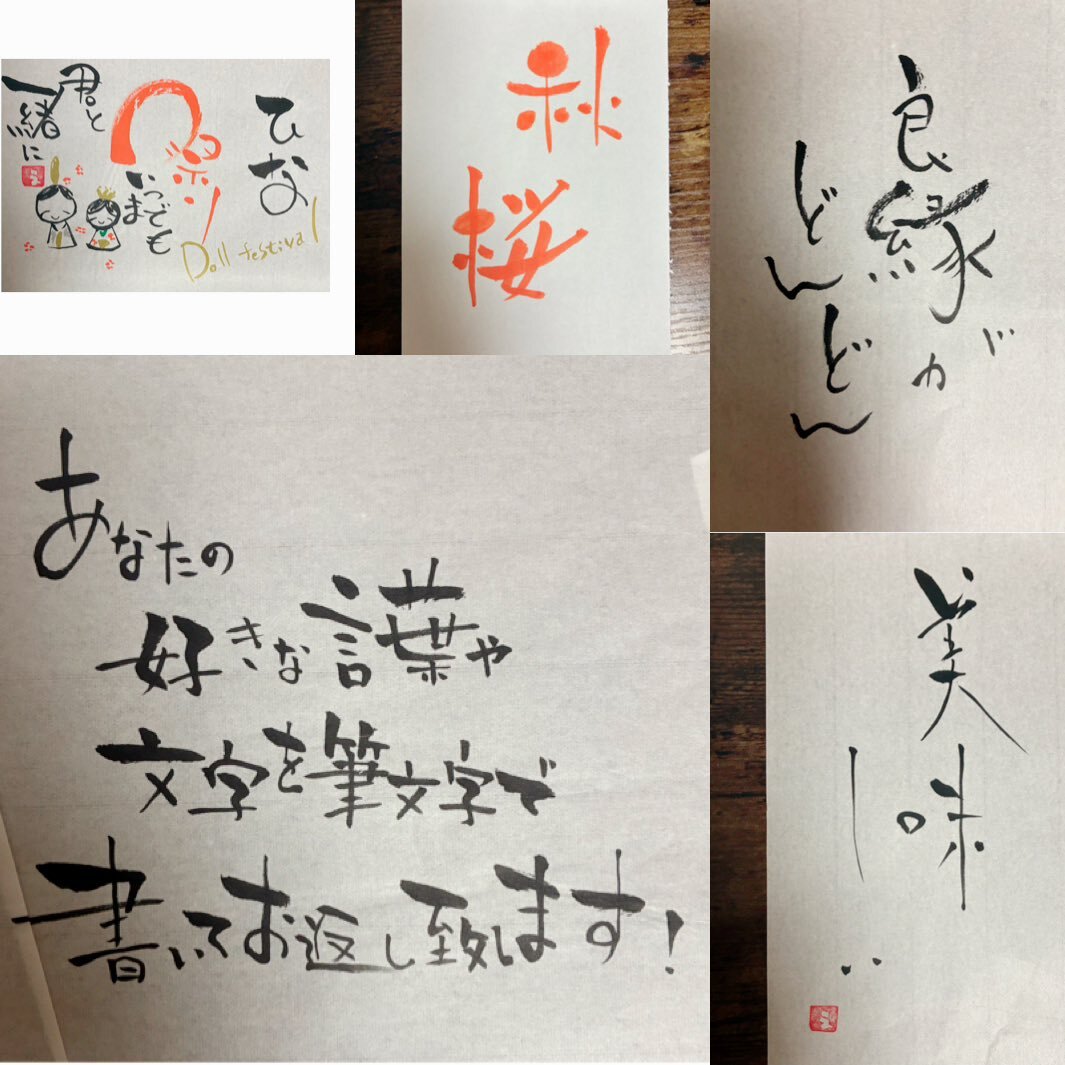 ひな
祭り
Doll festival
いつでも
いま
君と
一緒に
秋
桜
良縁が
どんどん
あなたの
好きな言葉や
文字を筆文字で
書いてお返し致します!
美味
しい